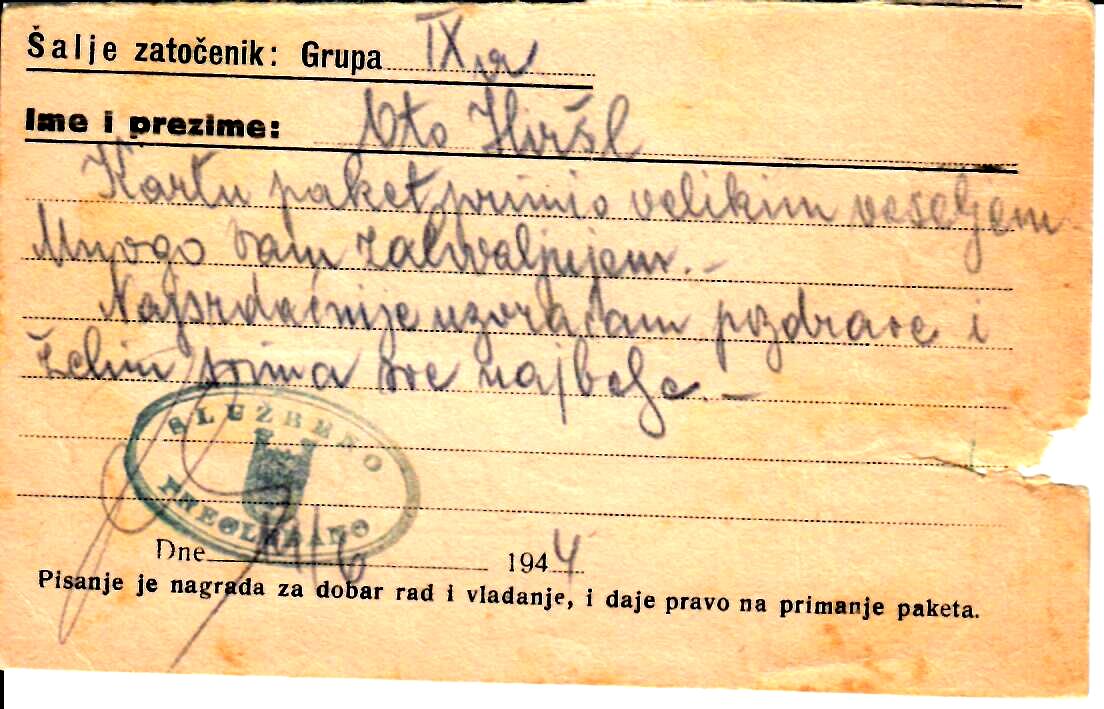 Šalje zatočenik: Grupa IX a
Ime i prezime: Oto Hiršl
Kartu paket primio velikim veseljem.
Mnogo Vam zahvaljujem.–
Najsrdačnije uzvraćam pozdrave i
želim svima sve najbolje.–
SLUŽBENO
PREGLEDANO
Dne 11/6 1944
Pisanje je nagrada za dobar rad i vladanje, i daje pravo na primanje paketa.